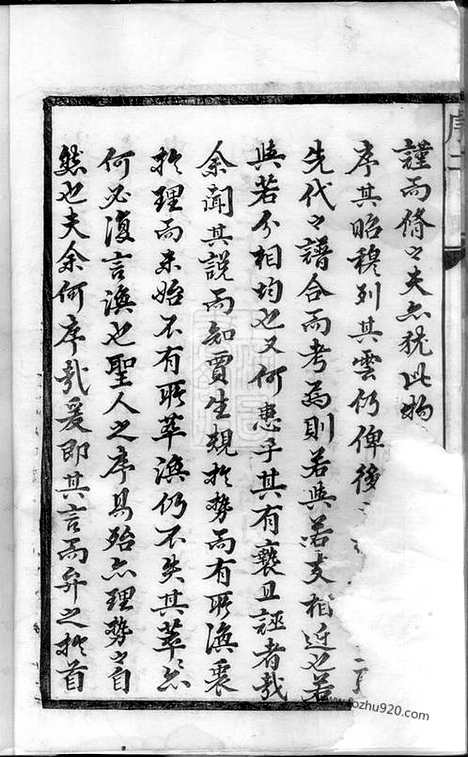 謹而脩之夫亦猶此物
序其昭穆列其雲仍俾後
先代之譜合而考焉則若與若支相近也若
與若分相均也又何患乎其有褻且誣者哉
余聞其說而知賈生規於勢而有所渙裒
於理而未始不有所萃渙仍不失其萃亦
何必復言渙也聖人之序易殆亦理勢之自
然也夫余何序哉爰即其言而弁之於首
序二
www.bozhu920.com